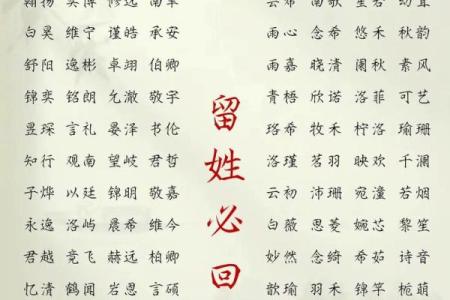 白昊 维宁 谨皓 承安
舒阳 逸彬 卓翊 伯卿
锦奕 铭朗 允澈 敬宇
昱琛 言礼 晏泽 书伦
知行 观南 望岐 君哲
子烨 以廷 锦明 敬嘉
永逸 洛屿 晨希 维今
君越 竞飞 赫远 柏卿
忆清 鹤闻 岩恩 言硕
留姓必回
雨心 念希 悠禾 秋韵
雨嘉 晓清 阑秋 素风
青梧 欣诺 洛菲 可艺
珞希 牧禾 柠洛 瑜珊
洛瑾 茗羽 映欢 千澜
云初 沛珊 宛潼 若烟
白薇 思菱 婉芯 黎笙
妙然 念绮 希茹 诗音
歆瑜 羽禾 锦竿 栀萌